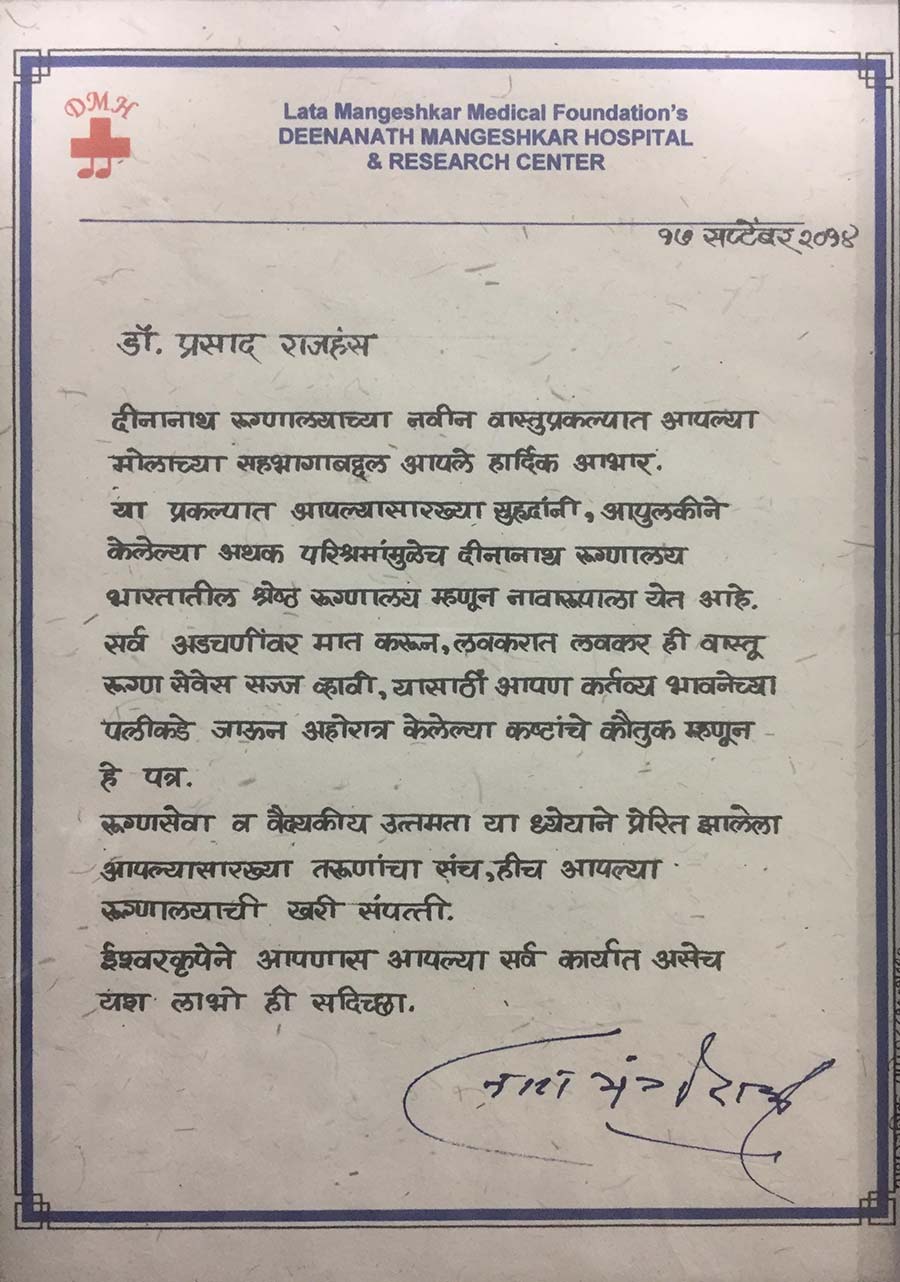 DMH
Lata Mangeshkar Medical Foundation's
DEENANATH MANGESHKAR HOSPITAL
& RESEARCH CENTER
१७ सप्टेंबर २०१४
डॉ. प्रसाद राजहंस
दीनानाथ रूग्णालयाच्या नवीन वास्तुप्रकल्पात आपल्या
मोलाच्या सहभागाबद्दल आपले हार्दिक आभार.
या प्रकल्पात आपल्यासारख्या सुहृदांनी, आपुलकीने
केलेल्या अथक परिश्रमांमुळेच दीनानाथ रूग्णालय
भारतातील श्रेष्ठ रूग्णालय म्हणून नावारूपाला येत आहे.
सर्व अडचणींवर मात करून, लवकरात लवकर ही वास्तू
रूग्ण सेवेस सज्ज व्हावी, यासाठीं आपण कर्तव्य भावनेच्या
पलीकडे जाऊन अहोरात्र केलेल्या कष्टांचे कौतुक म्हणून
हे पत्र.
रूग्णसेवा व वैद्यकीय उत्तमता या ध्येयाने प्रेरित झालेला
आपल्यासारख्या तरूणांचा संच, हीच आपल्या
रूग्णालयाची खरी संपत्ती.
ईश्वरकृपेने आपणास आपल्या सर्व कार्यात असेच
यश लाभो ही सदिच्छा.
लता मंगेशकर